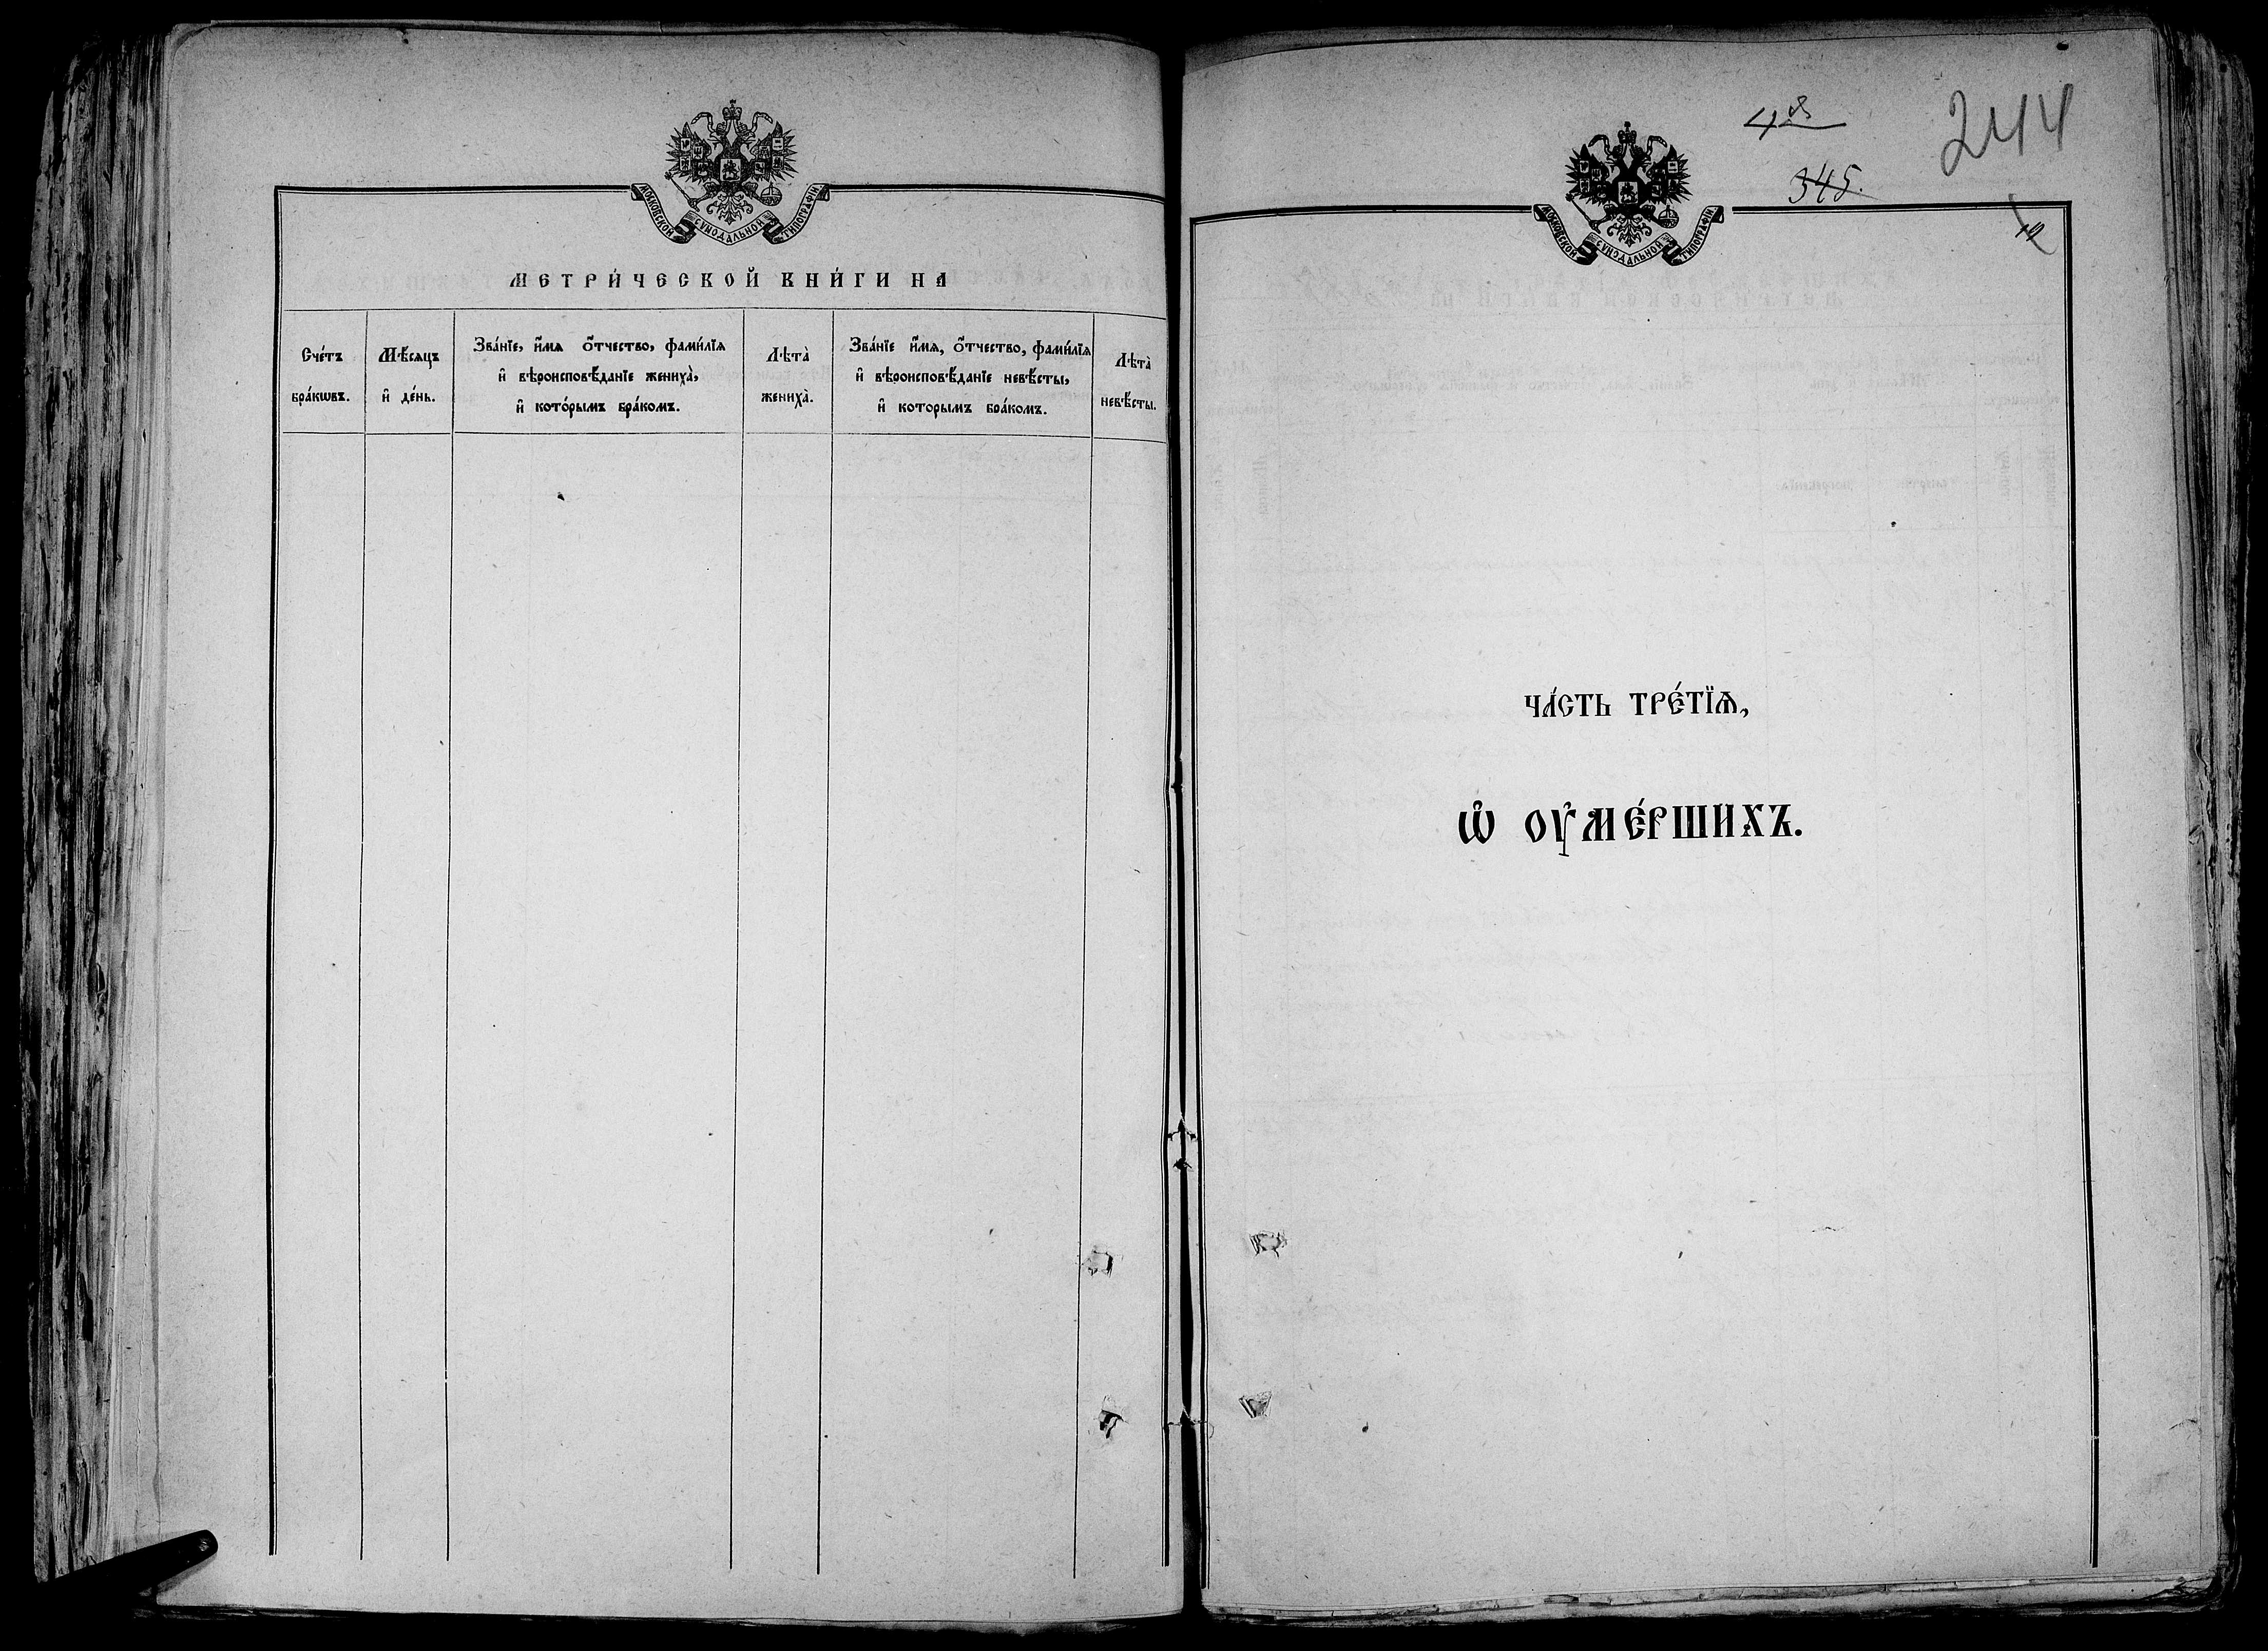 МОСКОВСКОЙ СѴНОДАЛЬНОЙ ТИПОГРАФІИ
МЕТРИ́ЧЕСКОЙ КНИ́ГИ НА
Сче́тъ
бра́кѡвъ.
Мѣ́сяцъ
и҆ де́нь.
Зва́нїе, и҆́мѧ ѻ҆́тчество, фами́лїѧ
и҆ вѣроисповѣ́данїе жениха̀,
и҆ кото́рымъ бра́комъ.
Лѣта̀
жениха̀.
Зва́нїе и҆́мѧ, ѻ҆́тчество, фами́лїѧ
и҆ вѣроисповѣ́данїе невѣ́сты,
и҆ которымъ бра́комъ.
Лѣта̀
невѣ́сты.
244
345.
МОСКОВСКОЙ СѴНОДАЛЬНОЙ ТИПОГРАФІИ
ЧА́СТЬ ТРЕ́ТЇѦ,
Ѡ҆ ОУ҆МЕ́РШИХЪ.